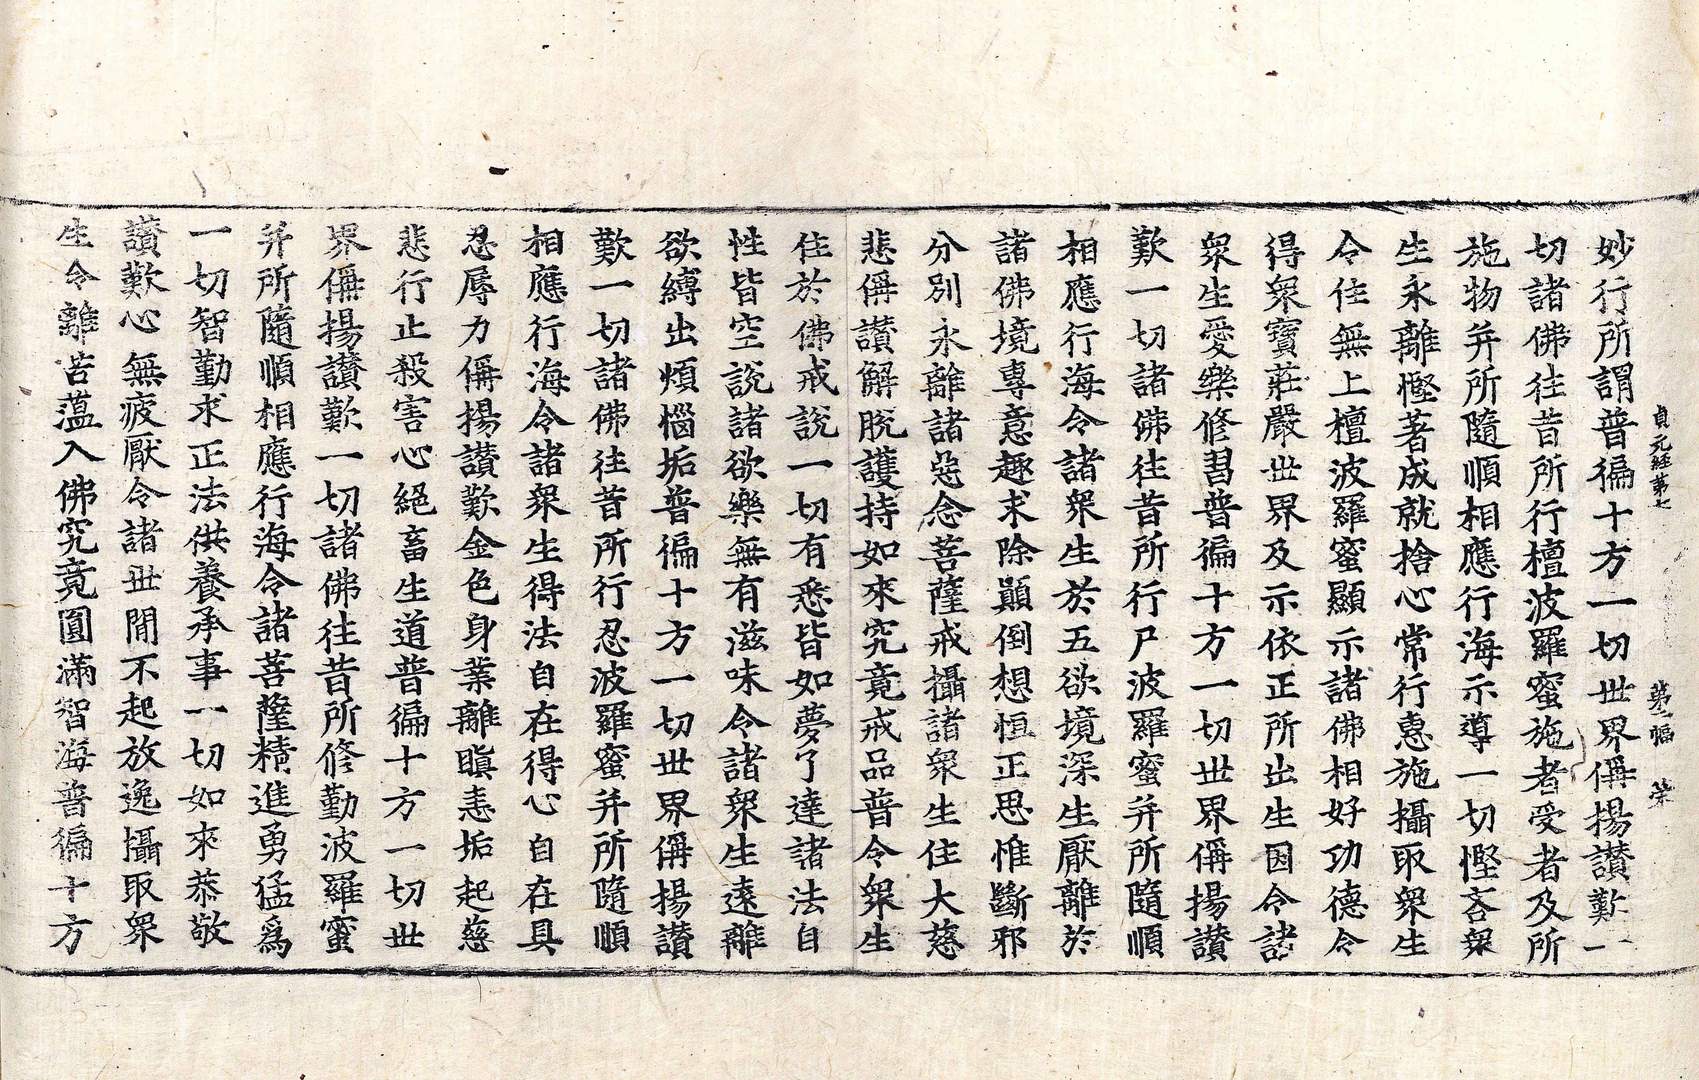 貞元經第七 第二幅 榮
妙行所謂普徧十方一切世界偁揚讃歎一
切諸佛往昔所行檀波羅蜜施者受者及所
施物并所隨順相應行海示導一切慳吝衆
生永離慳著成就捨心常行惠施攝取衆生
令住無上檀波羅蜜顯示諸佛相好功德令
得衆寶莊嚴世界及示依正所出生因令諸
衆生愛樂修習普徧十方一切世界偁揚讃
歎一切諸佛往昔所行尸波羅蜜并所隨順
相應行海令諸衆生於五欲境深生厭離於
諸佛境專意趣求除顚倒想恒正思惟斷邪
分別永離諸惡念菩薩戒攝諸衆生住大慈
悲偁讃解脫護持如來究竟戒品普令衆生
住於佛戒說一切有悉皆如夢了達諸法自
性皆空說諸欲樂無有滋味令諸衆生遠離
欲縛出煩惱垢普徧十方一切世界偁揚讃
歎一切諸佛往昔所行忍波羅蜜并所隨順
相應行海令諸衆生得法自在得心自在具
忍辱力偁揚讃歎金色身業離瞋恚垢起慈
悲行止殺害心絕畜生道普徧十方一切世
界偁揚讃歎一切諸佛往昔所修勤波羅蜜
并所隨順相應行海令諸菩薩精進勇猛爲
一切智勤求正法供養承事一切如來恭敬
讃歎心無疲厭令諸世間不起放逸攝取衆
生令離苦蘊入佛究竟圓滿智海普徧十方